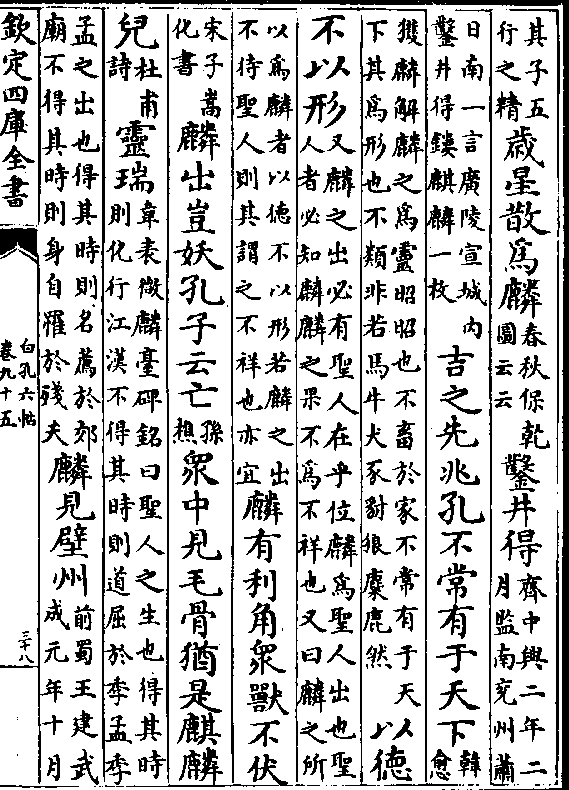 其子五行之精歲星散爲麟春秋保乾圖云云鑿井得齊中興二年二月監南兖州蕭
日南一言廣陵宣城内鑿井得鏤麒麟一枚吉之先兆孔不常有于天下韓愈
獲麟解麟之爲靈昭昭也不畜於家不常有于天下其爲形也不類非若馬牛犬豕豺狼麋鹿然以德
不以形又麟之出必有聖人在乎位麟爲聖人出也聖人者必知麟麟之果不爲不祥也又曰麟之所
以爲麟者以德不以形若麟之出不待聖人則其謂之不祥也亦宜麟有利角衆獸不伏
宋子嵩化書麟出豈妖孔子云亡孫樵衆中見毛骨猶是麒麟
兒杜甫詩靈瑞韋表微麟臺碑銘曰聖人之生也得其時則化行江漢不得其時則道屈於季孟季
孟之出也得其時則名薦於郊廟不得其時則身自罹於殘夫麟見壁州前蜀王建武成元年十月
欽定四庫全書
白孔六帖
卷九十五
三十八